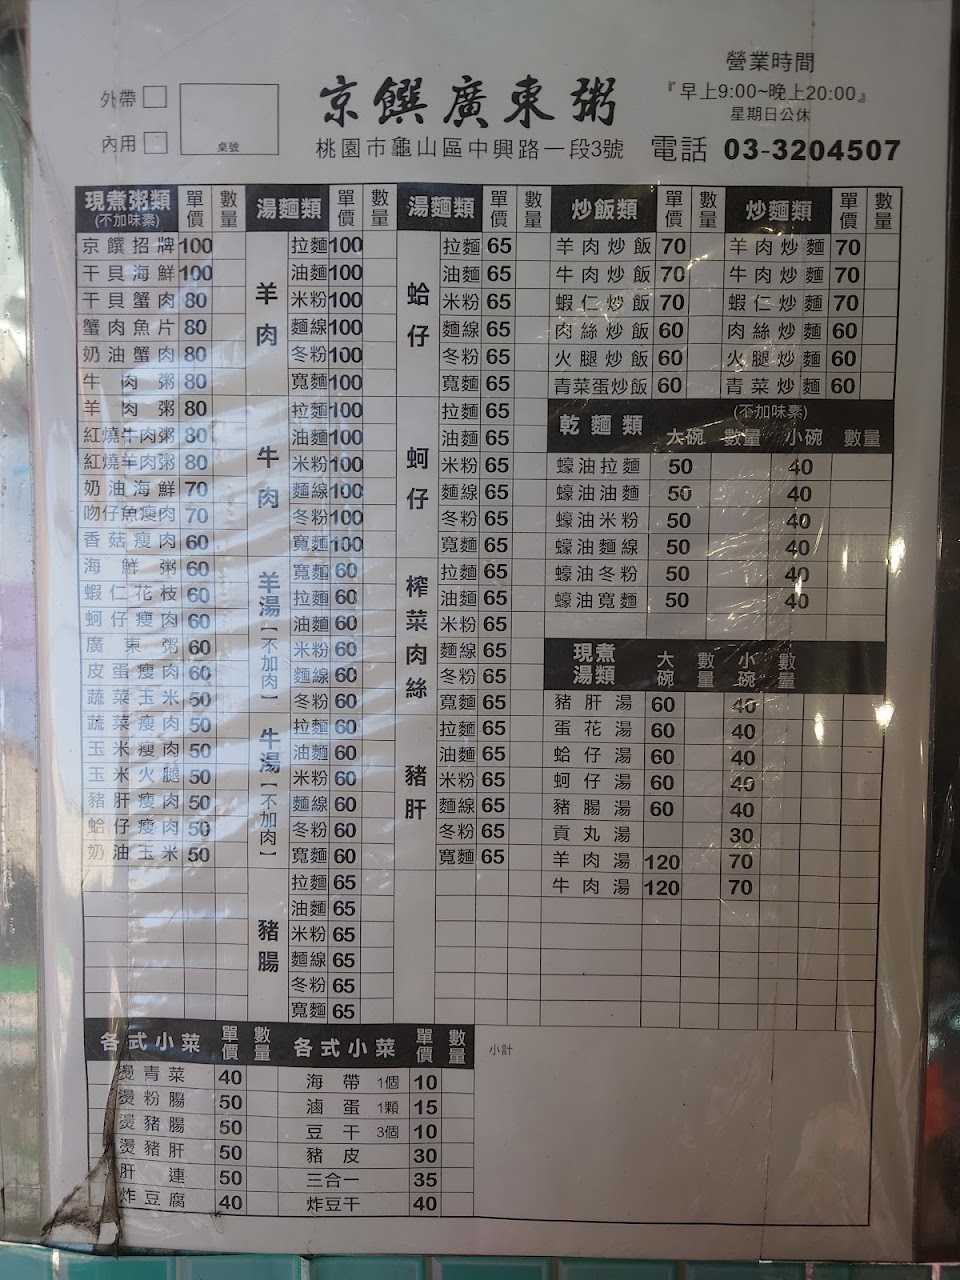 營業時間
『早上9:00~晚上20:00』
星期日公休
外帶
內用
桌號
京饌廣東粥
桃園市龜山區中興路一段3號 電話 03-3204507
現煮粥類 單價 數量
(不加味素)
京饌招牌 100
干貝海鮮 100
干貝蟹肉 80
蟹肉魚片 80
奶油蟹肉 80
牛肉粥 80
羊肉粥 80
紅燒牛肉粥 80
紅燒羊肉粥 80
奶油海鮮 70
吻仔魚瘦肉 70
香菇瘦肉 60
海鮮粥 60
蝦仁花枝 60
蚵仔瘦肉 60
廣東粥 60
皮蛋瘦肉 60
蔬菜玉米 50
蔬菜瘦肉 50
玉米瘦肉 50
玉米火腿 50
豬肝瘦肉 50
蛤仔瘦肉 50
奶油玉米 50
湯麵類 單價 數量
羊肉
拉麵 100
油麵 100
米粉 100
麵線 100
冬粉 100
寬麵 100
牛肉
拉麵 100
油麵 100
米粉 100
麵線 100
冬粉 100
寬麵 100
羊湯【不加肉】
寬麵 60
拉麵 60
油麵 60
米粉 60
麵線 60
冬粉 60
牛湯【不加肉】
拉麵 60
油麵 60
米粉 60
麵線 60
冬粉 60
寬麵 60
豬腸
拉麵 65
油麵 65
米粉 65
麵線 65
冬粉 65
寬麵 65
湯麵類 單價 數量
蛤仔
拉麵 65
油麵 65
米粉 65
麵線 65
冬粉 65
寬麵 65
蚵仔
拉麵 65
油麵 65
米粉 65
麵線 65
冬粉 65
寬麵 65
榨菜肉絲
拉麵 65
油麵 65
米粉 65
麵線 65
冬粉 65
寬麵 65
豬肝
拉麵 65
油麵 65
米粉 65
麵線 65
冬粉 65
寬麵 65
炒飯類 單價 數量
羊肉炒飯 70
牛肉炒飯 70
蝦仁炒飯 70
肉絲炒飯 60
火腿炒飯 60
青菜蛋炒飯 60
炒麵類 單價 數量
羊肉炒麵 70
牛肉炒麵 70
蝦仁炒麵 70
肉絲炒麵 60
火腿炒麵 60
青菜炒麵 60
(不加味素)
乾麵類 大碗 數量 小碗 數量
蠔油拉麵 50 40
蠔油油麵 50 40
蠔油米粉 50 40
蠔油麵線 50 40
蠔油冬粉 50 40
蠔油寬麵 50 40
現煮湯類 大碗 數量 小碗 數量
豬肝湯 60 40
蛋花湯 60 40
蛤仔湯 60 40
蚵仔湯 60 40
豬腸湯 60 40
貢丸湯 30
羊肉湯 120 70
牛肉湯 120 70
各式小菜 單價 數量
燙青菜 40
燙粉腸 50
燙豬腸 50
燙豬肝 50
肝連 50
炸豆腐 40
各式小菜 單價 數量
海帶 1個 10
滷蛋 1顆 15
豆干 3個 10
豬皮 30
三合一 35
炸豆干 40
小計